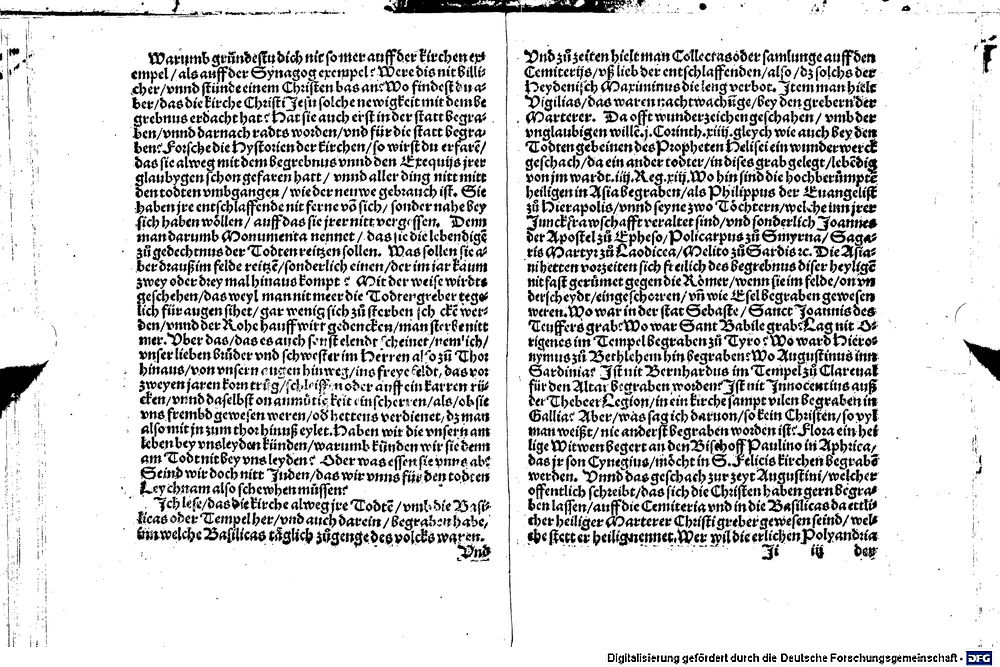 Warumb gründestu dich nit so mer auff der kirchen ex
empel / als auff der Synagog exempel? Were dis nit billi
cher / vnnd stünde einem Christen bas an? Wo findestu a⸗
ber / das die kirche Christi Jesu solche newigkeit mit dem be
grebnus erdacht hat? Hat sie auch erst in der statt begra⸗
ben / vnnd darnach radts worden / vnd für die statt begra⸗
ben? Forsche die Hystorien der kirchen / so wirst du erfarē /
das sie alweg mit dem begrebnus vnnd den Exequijs jrer
glaubygen schon gefaren hatt / vnnd aller ding nitt mitt
den todten vmbgangen / wie der neuwe gebrauch ist. Sie
haben jre entschlaffende nit ferne vō sich / sonder nahe bey
sich haben wöllen / auff das sie jrer nitt vergessen. Denn
man darumb Monumenta nennet / das sie die lebendigē
zů gedechtnus der Todten reitzen sollen. Was sollen sie a⸗
ber drauß im felde reitzē / sonderlich einen / der im jar kaum
zwey oder drey mal hinaus kompt? Mit der weise wirdts
geschehen / das weyl man nit meer die Todtengreber teg⸗
lich für augen sihet / gar wenig sich zů sterben schicken wer⸗
den / vnnd der Rohe hauff wirt gedencken / man sterbe nitt
mer. Vber das / das es auch sonst elendt scheinet / nemlich /
vnser lieben brüder vnd schwester im Herren also zů Thor
hinaus / von vnsern augen hinweg / ins freye feldt, das vor
zweyen jaren korn trůg / schleiffen oder auff ein karren rü⸗
cken / vnnd daselbst on anmütigkeit einscherren / als / ob sie
vns frembd gewesen weren / od hettens verdienet, dz man
also mit jn zum thor hinuß eylet. Haben wir die vnsern am
leben bey vns leyden künden / warumb künden wir sie denn
am Todt nit bey vns leyden? Oder was essen sie vnns ab?
Seind wir doch nitt Juden / das wir vnns für den todten
Leychnam also schewhen müssen?
Ich lese / das die kirche alweg jre Todtē / vmb die Basi⸗
licas oder Tempel her / vnd auch darein / begraben habe,
inn welche Basilicas täglich zůgenge des volcks waren.
Vnd
Vnd zů zeiten hielt man Collectas oder samlunge auff den
Cemiterijs / vß lieb der entschlaffenden / also / dz solchs der
Heydenisch Maximinus die leng verbot. Item man hielt
Vigilias / das waren nachtwachüge / bey den grebern der
Marterer. Da offt wunderzeichen geschahen / vmb der
vnglaubigen willē. j. Corinth. xiiij. gleych wie auch bey den
Todten gebeinen des Propheten Helisei ein wunderwerck
geschach / da ein ander todter / in dises grab gelegt / lebēdig
von jm wardt. iiij. Reg. xiij. Wo hin sind die hochberümptē
heiligen in Asia begraben / als Philippus der Euangelist
zů Hierapolis / vnnd seyne zwo Töchtern / welche inn jrer
Junckfrawschafft veraltet sind / vnd sonderlich Joannes
der Apostel zů Epheso / Policarpus zů Smyrna / Saga⸗
ris Martyr zů Laodicea / Melito zů Sardis ꝛc. Die Asia⸗
ni hetten vorzeiten sich freilich des begrebnus diser heyligē
nit fast gerümet gegen die Römer / wenn sie im felde / on vn
derscheydt / eingeschoren / vñ wie Esel begraben gewesen
weren. Wo war in der stat Sebaste / Sanct Joannis des
Teuffers grab? Wo war Sant Babile grab? Lag nit O⸗
rigenes im Tempel begraben zů Tyro? Wo ward Hiero⸗
nymus zů Bethlehem hin begraben? Wo Augustinus inn
Sardinia? Ist nit Bernhardus im Tempel zů Clareual
für den Altar begraben worden? Ist nit Innocentius auß
der Thebeer Legion / in ein kirchē sampt vilen begraben in
Gallia? Aber / was sag ich daruon / so kein Christen / so vyl
man weißt / nie anderst begraben worden ist? Flora ein hei
lige Witwen begert an den Bischoff Paulino in Aphrica,
das jr son Cynegius / möcht in S. Felicis kirchen begrabē
werden. Vnnd das geschach zur zeyt Augustini / welcher
offentlich schreibt / das sich die Christen haben gern begra⸗
ben lassen / auff die Cemiteria vnd in die Basilicas da ettli⸗
cher heiliger Marterer Christi greber gewesen seind / wel⸗
che stett er heilig nennet. Wer wil die erlichen Polyandria
Ji iij der
Digitalisierung gefördert durch die Deutsche Forschungsgemeinschaft - DFG